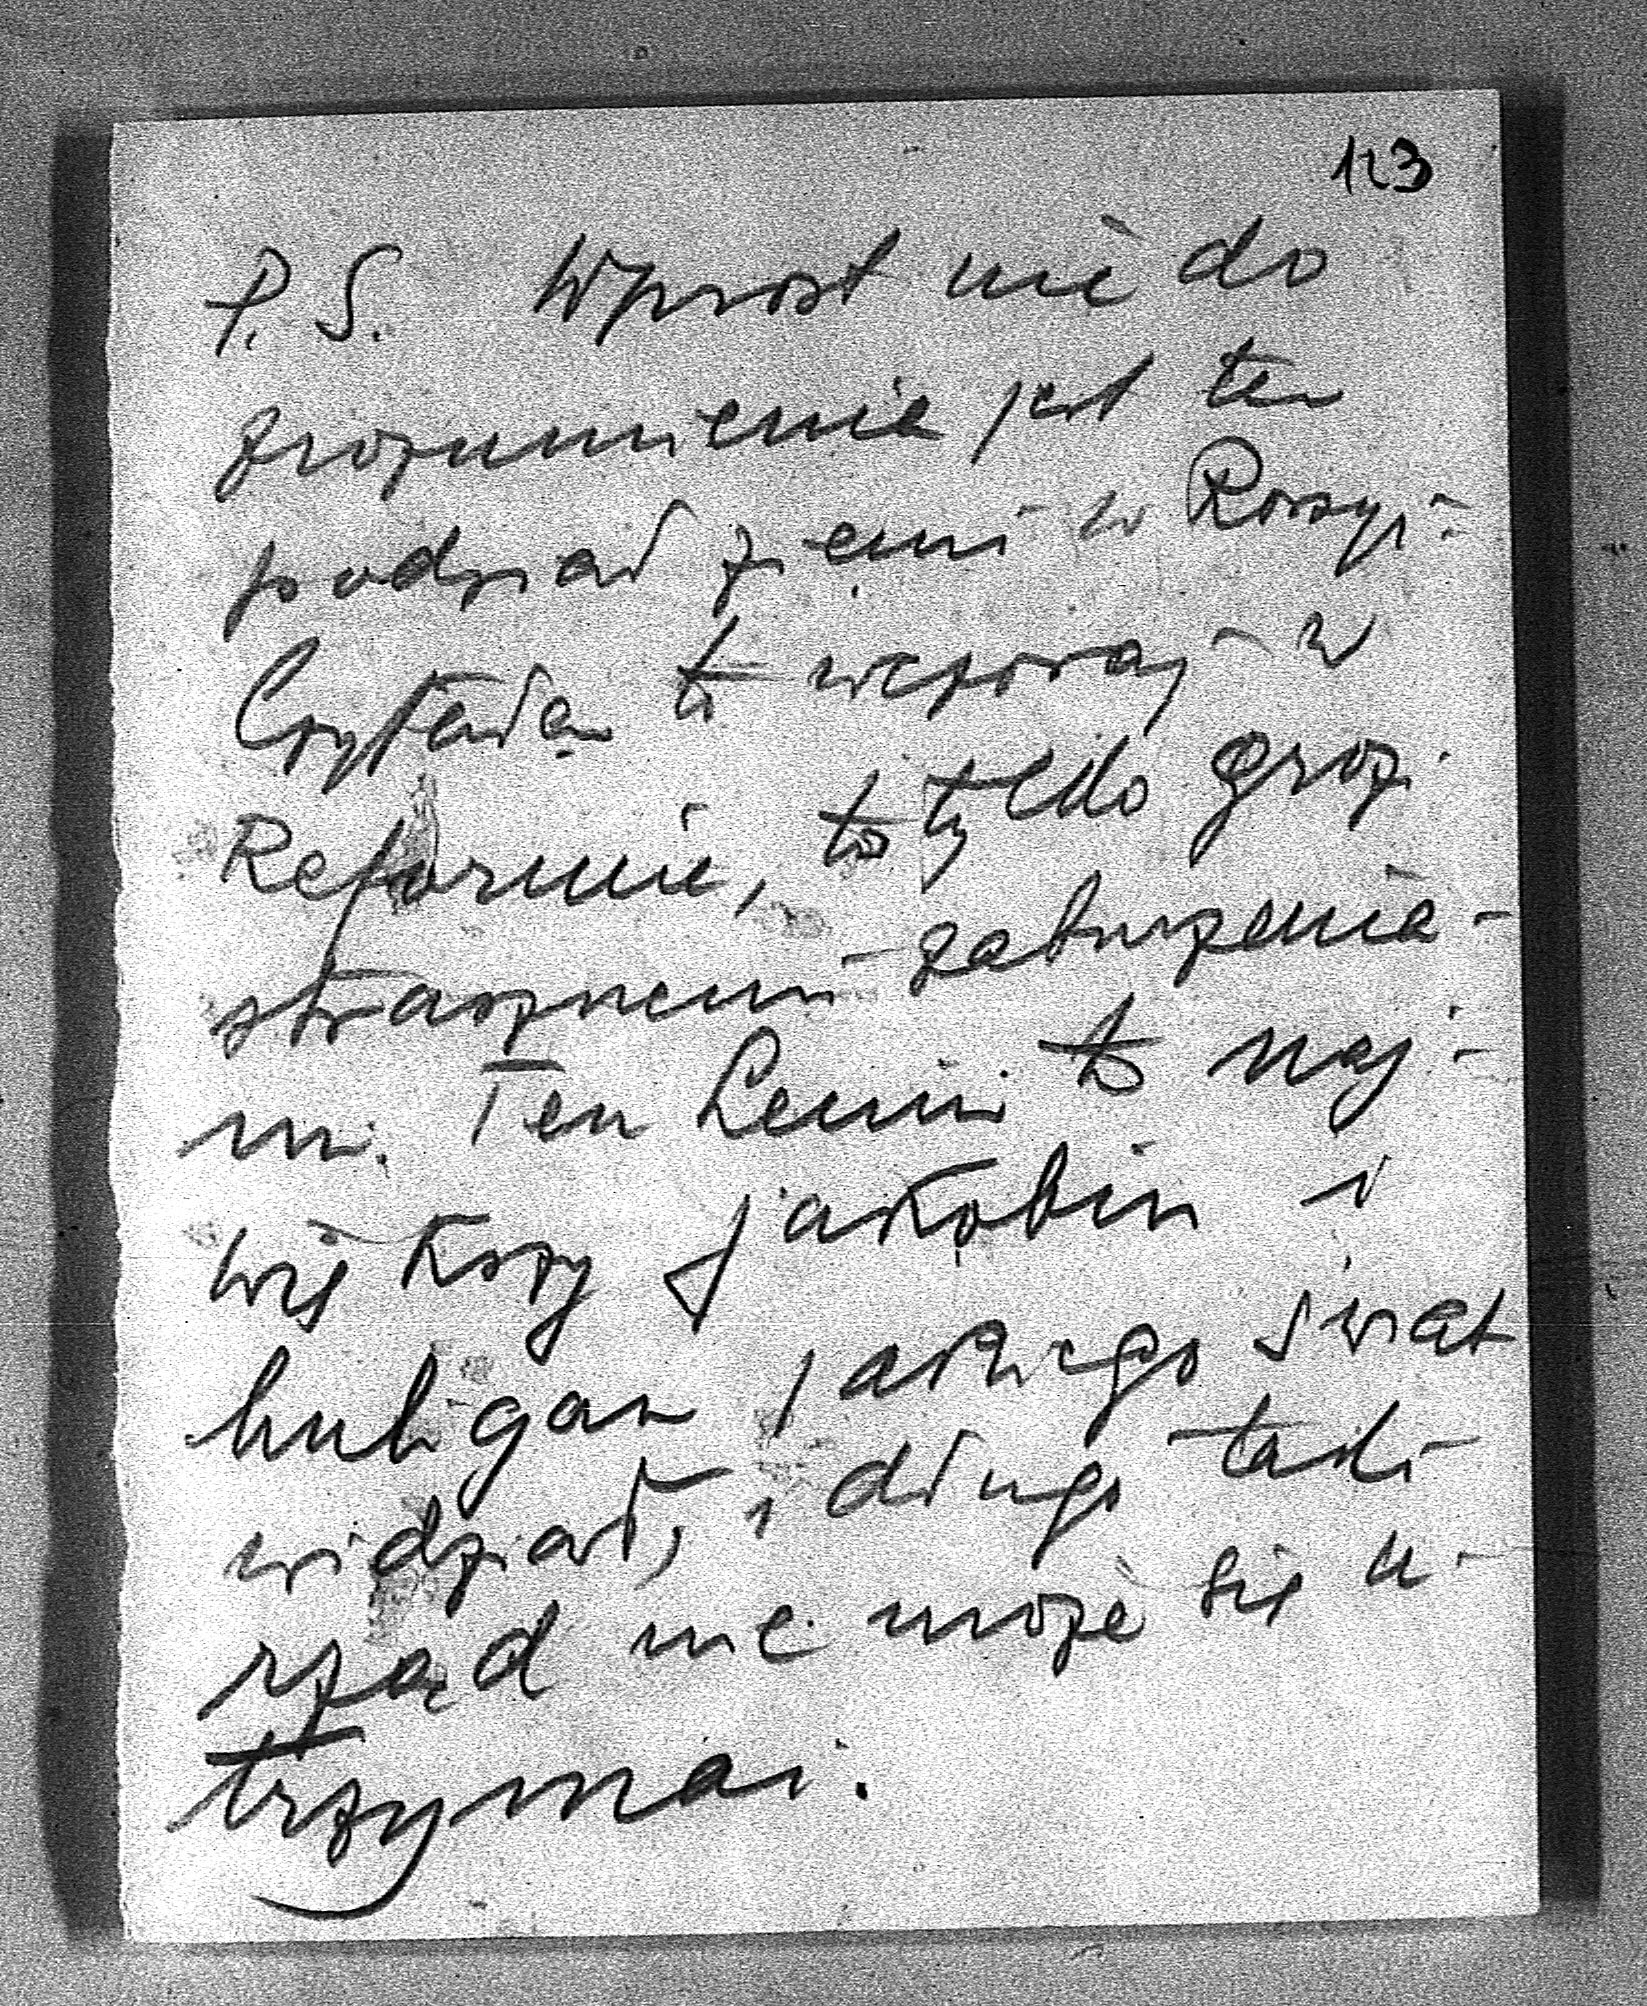 123
P. S. Wprost nie do
zrozumienia jest ten
podział ziemi w Rosyi
Czytałem to wczoraj w
Reformie, to tylko grozi
strasznemi zaburzenia-
mi. Ten Lenin to naj-
większy jakobin i
huligan jakiego świat
widział, i długo taki
rząd nie może się u-
trzymać.